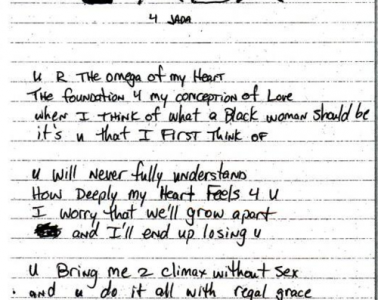 4 JADA
U R THE omega of my Heart
The foundation 4 my conception of Love
when I THINK of what a Black woman should be
it's u that I FIRST THINK OF
u will Never fully understand
How Deeply my Heart Feels 4 U
I worry that we'll grow apart
and I'll end up losing u
U Bring me 2 climax without sex
and u do it all with regal grace